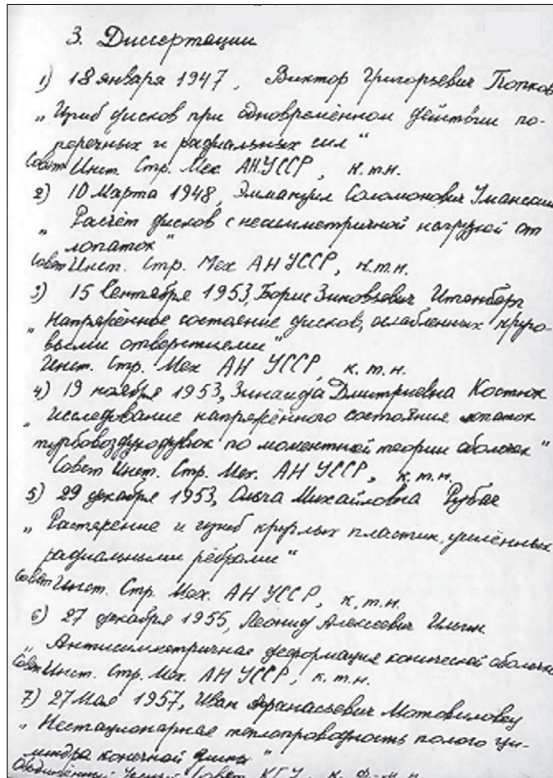 3. Диссертации
1) 18 января 1947, Виктор Григорьевич Попков
„Изгиб дисков при одновременном действии по-
перечных и радиальных сил“
Совет Инст. Стр. Мех АН УССР, к.т.н.
2) 10 Марта 1948, Эммануил Соломонович Уманский
„Расчёт дисков с несимметричной нагрузкой от
лопаток“
Совет Инст. Стр. Мех АН УССР, к.т.н.
3) 15 Сентября 1953, Борис Зиновьевич Итенберг
„Напряжённое состояние дисков, ослабленных круго-
выми отверстиями“
Инст. Стр. Мех АН УССР, к.т.н.
4) 19 ноября 1953, Зинаида Дмитриевна Костюк
„Исследование напряжённого состояния лопаток
турбовоздуходувок по моментной теории оболочек“
Совет Инст. Стр. Мех. АН УССР, к.т.н.
5) 29 декабря 1953, Ольга Михайловна
„Растяжение и изгиб круглых пластин, усиленных
радиальными рёбрами“
Совет Инст. Стр. Мех. АН УССР, к.т.н.
6) 27 декабря 1955, Леонид Алексеевич Ильин
„Антисимметричная деформация конической оболочки
Совет Инст. Стр. Мех. АН УССР, к.т.н.
7) 27 Мая 1957, Иван Афанасьевич Мотовиловец
„Нестационарная теплопроводность полого ци-
линдра конечной длины“
Совет КГУ, к. ф. м. н.